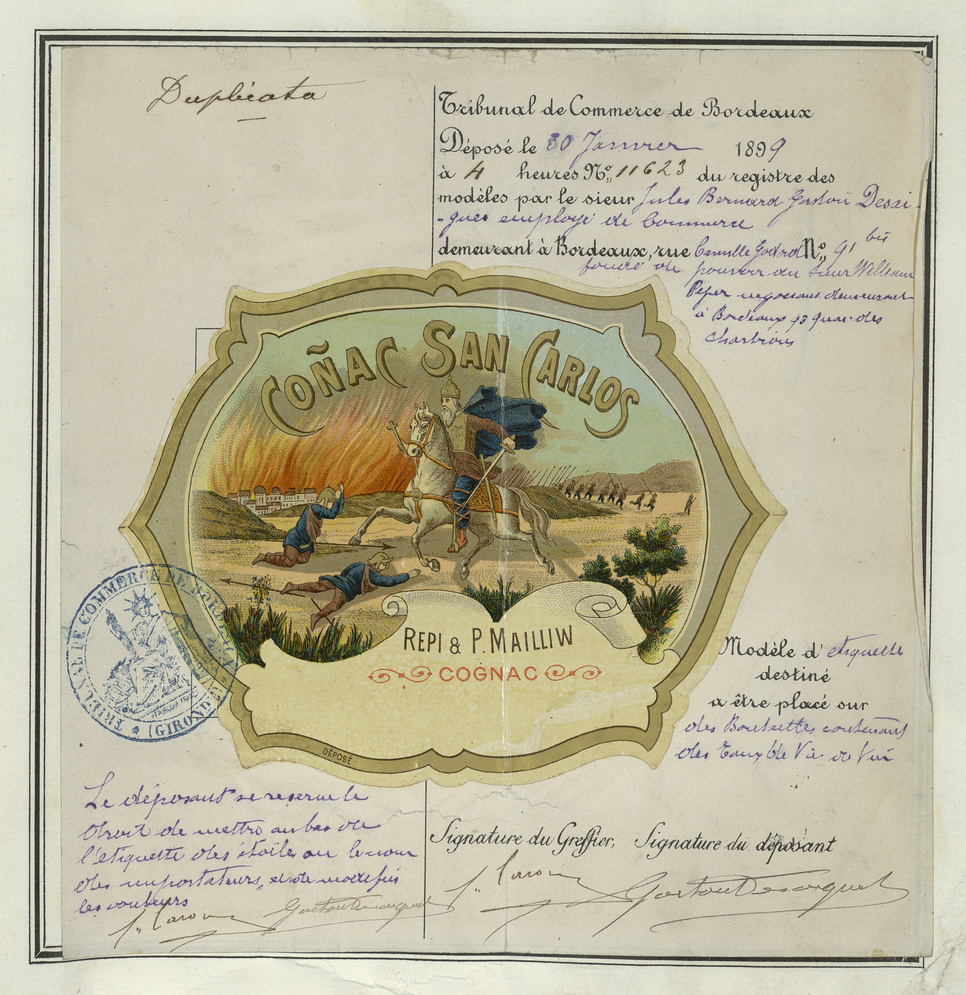 Duplicata
Tribunal de Commerce de Bordeaux
Déposé le 30 Janvier 1899
à 4 heures No. 11623 du registre des
modèles par le sieur Jules Bernard Gaston Desai-
-gues employé de Commerce
demeurant à Bordeaux, rue Camille Godard No. 91 bis
fondé de pouvoir du Sieur William
Peper négociant demeurant
à Bordeaux 93 quai des
Chartrons
COÑAC SAN CARLOS
REPI & P. MAILLIW
COGNAC
DÉPOSÉ
TRIBUNAL DE COMMERCE DE BORDEAUX
(GIRONDE)
Modèle d'étiquette
destiné
a être placé sur
des Bouteilles contenant
des Eaux de Vie de Vin
Le déposant se reserve le
droit de mettre au bas de
l'étiquette des étoiles ou le nom
des importateurs, et de modifier
les couleurs
Signature du Greffier, Signature du déposant